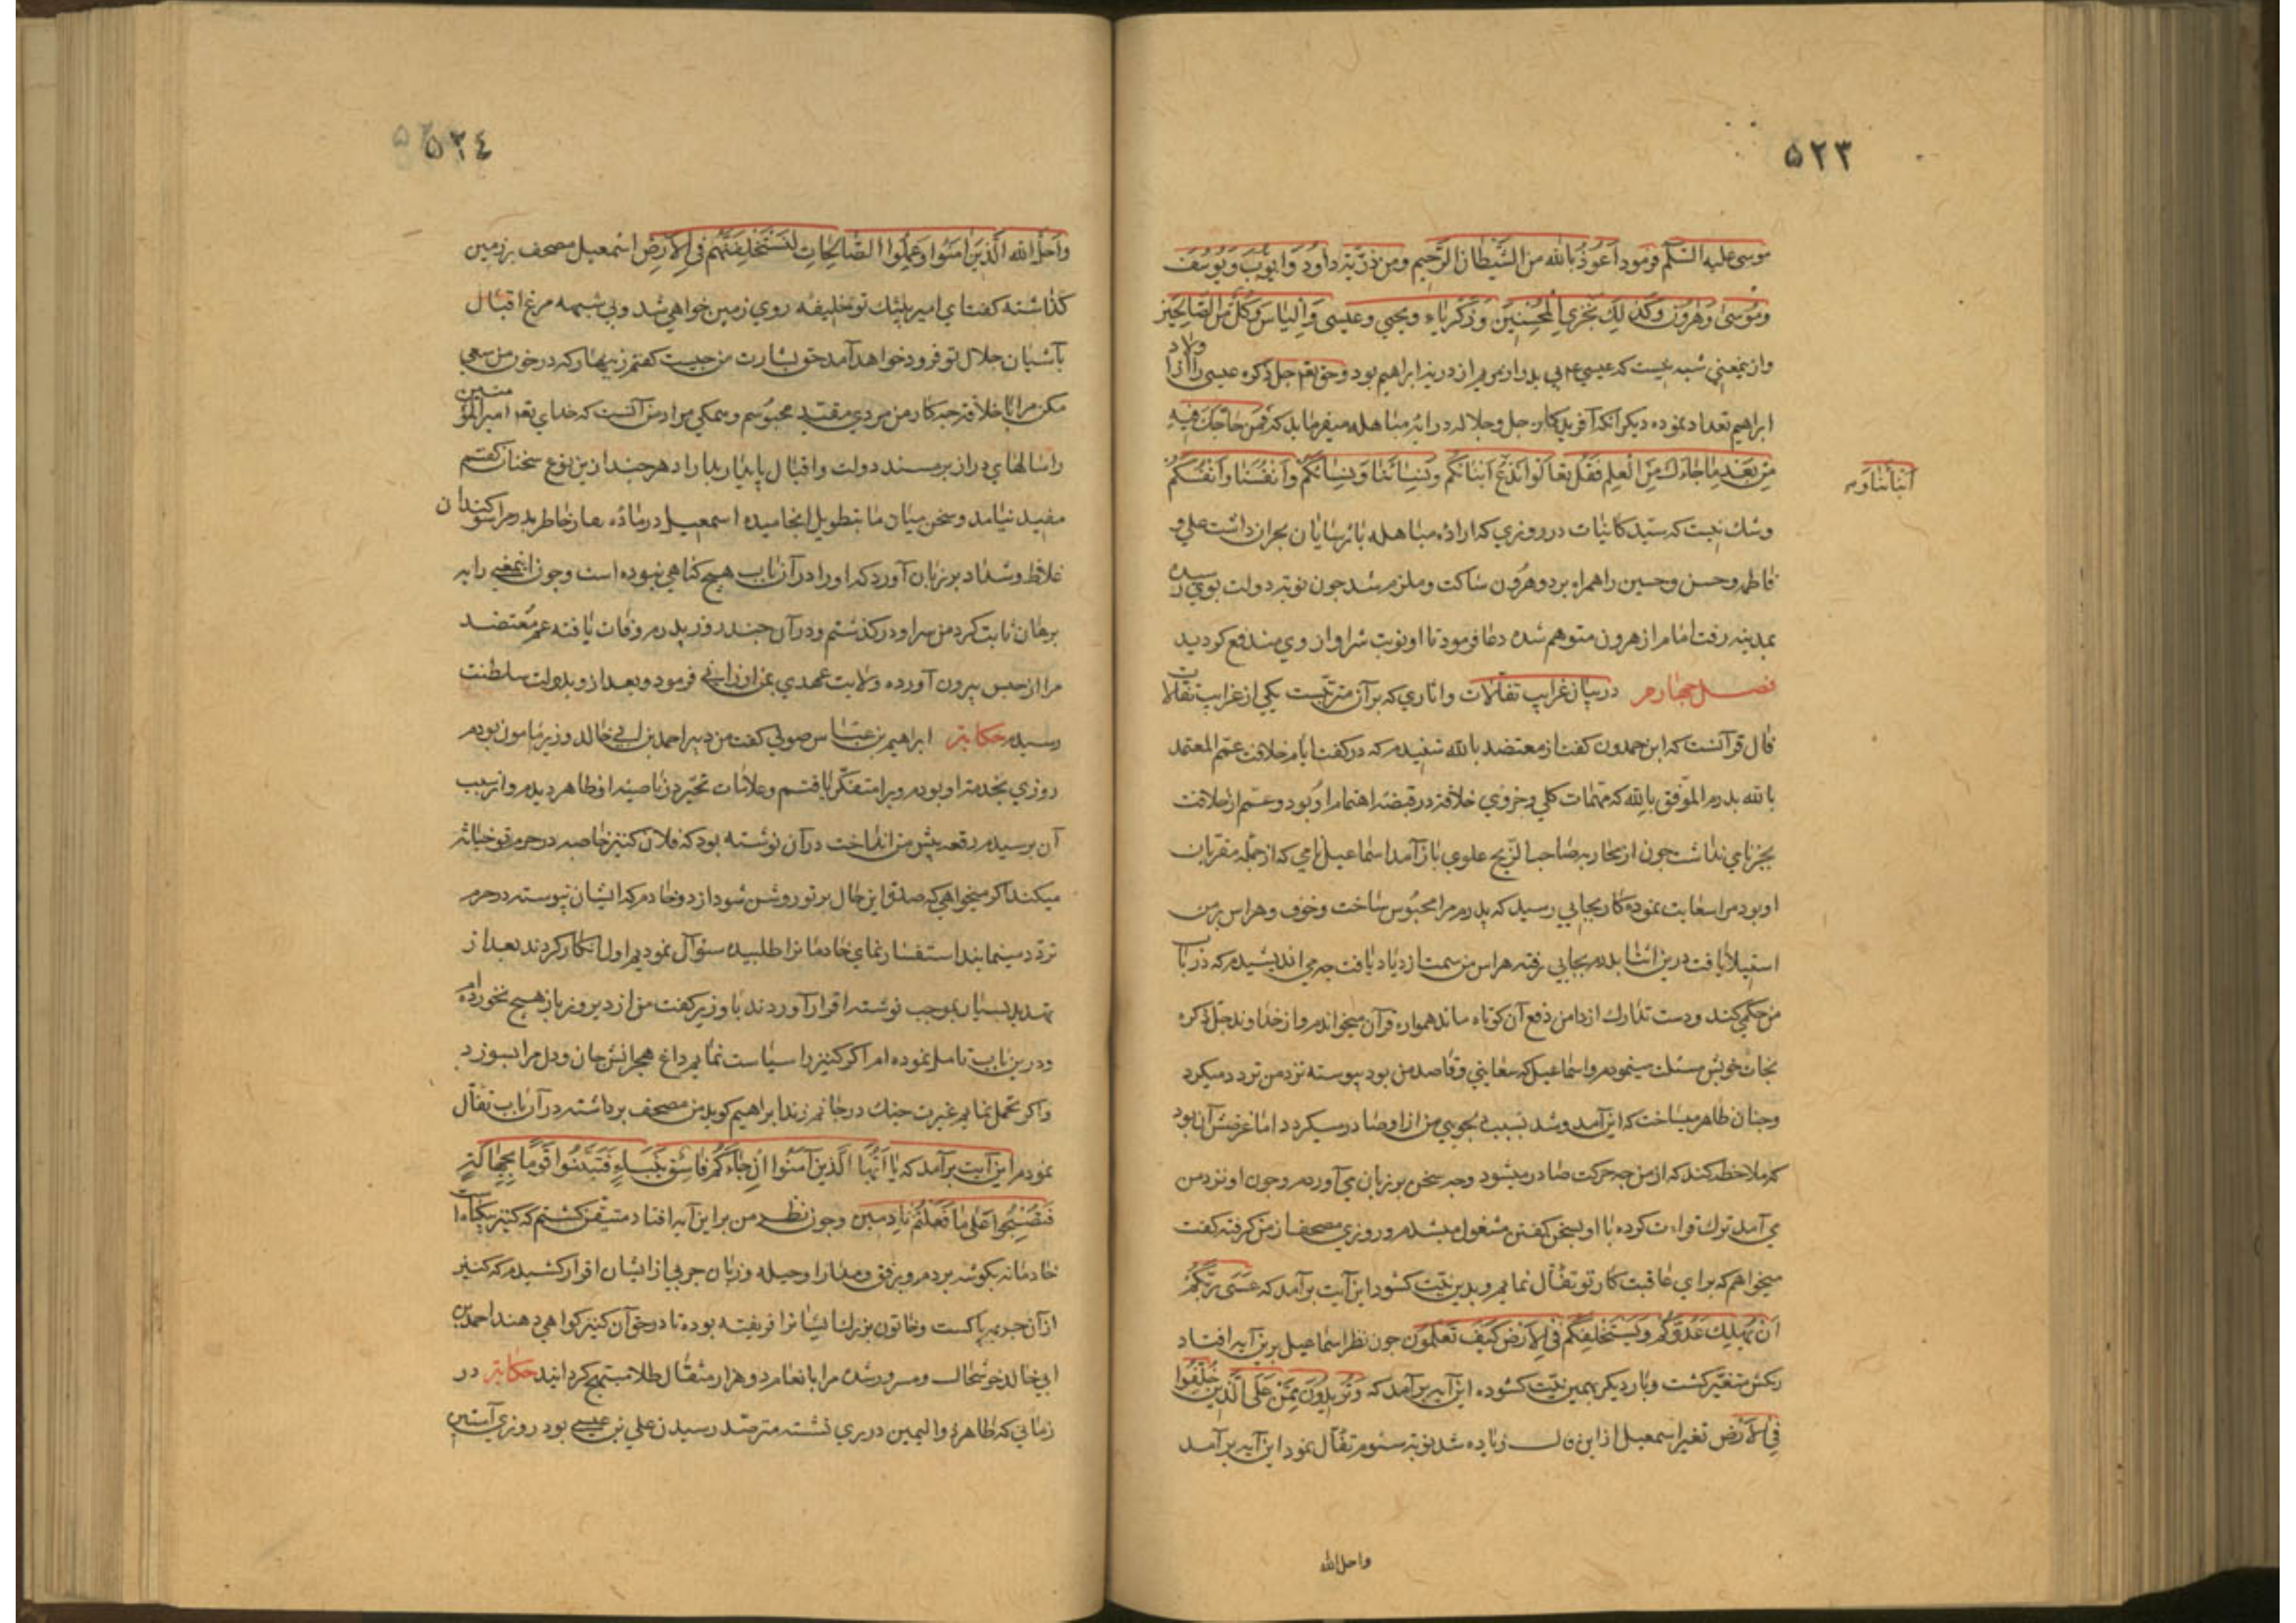 ۵۲۳
موسی علیه السّلم فرمود اَعُوذُ بِاللّه من الشَّیطان الرَّجیم ومن ذرّیّته داود وایّوبَ ویوُسُفَ
وموُسیٰ وهٰروُنَ وکَذٰلِكَ نَجْزِي الْمُحْسِنینَ وزکریّاء ویحیي وعیسی واِلیاسَ وکُلٌّ منَ الصّٰالِحینَ
وازینمعني شبهه نیست که عیسي ع م بی پدر از مریم از ذریهٔ ابراهیم بود وحق تعم جل ذکره عیسی را از اولاد
ابراهیم تعداد نموده دیکر آنکه آفریدکار جل وجلاله در آیهٔ مباهله میفرماید که فَمَنْ حٰاجَّكَ فِیهِ
مِنْ بَعْدِ مٰا جٰاءَكَ مِنَ الْعِلْمِ فَقُلْ تَعٰالَوْا نَدْعُ اَبْنٰائَکُمْ وَنِسٰائَنٰا وَنِسٰائَکُمْ وَاَنْفُسَنٰا وَاَنْفُسَکُمْ
اَبْنٰائَنٰا وَ
وشك نیست که سیّد کاینات در روزي که ارادهٔ مباهله با ترسایان نجران داشت علي و
فاطمه وحسن وحسین را همراه برد وهرون ساکت وملزم شد جون نوبت دولت بوي رسیده
بمدینه رفت امام از هرون متوهم شده دعا فرمود تا او نوبت شر او از وي مندفع کردید
فصل جهارم در بیان غرایب تفألات واثاري که بر آن مترتبست یکي از غرایب تفألات
فال قرآنست که ابن حمدون کفت از معتضد بالله شنیدم که در کفت ایام خلافت عمّم المعتمد
بالله پدرم الموّفق بالله که مهمّات کلي وجزوي خلافت در قبضهٔ اهتمام او بود وعمّم از خلافت
بجز نامي نداشت جون از محاربهٔ صاحب الزّنج علوي باز آمد اسماعیل نامي که از جملهٔ مقربان
او بود مرا سعایت نموده کار بجایي رسید که پدرم مرا محبوس ساخت وخوف وهراس بر من
استیلا یافت درین اثنا پدرم بجایي رفته هراس من سمت ازدیاد یافت جه مي اندیشیدم که در باب
من حکمي کند ودست تدارك از دامن دفع آن کوتاه ماند همواره قرآن میخواندم واز خداوند جل ذکره
نجات خویش مسئلت مینمودم واسماعیل که سعایتي وقاصد من بود پیوسته نزد من تردد میکرد
وجنان ظاهر میساخت که این آمد وشد بسبب دلجویي من از او صادر میکردد اما غرضش آن بود
که ملاحظه کند که از من جه حرکت صادر میشود وجه سخن بر زبان مي آورم وجون او نزد من
مي آمد ترك قراءت کرده با او بسخن کفتن مشغول میشدم وروزي مصحف از من کرفته کفت
میخواهم که براي عاقبت کار تو تفأل نمایم وبدین نیّت کشود این آیت برآمد که عَسَی رَبُّکُمْ
اَنْ یُهْلِكَ عَدُوَّکُمْ وَیَسْتَخْلِفَکُمْ فِي الْاَرْضِ کَیْفَ تَعْلَمُونَ جون نظر اسماعیل برین آیه افتاد
رنکش متغیّر کشت وبار دیکر بهمین نیّت کشوده این آیه برآمد که وَنُرِیدُ اَنْ نَمُنَّ عَلَی الَّذِینَ خُلِّفُوا
فِي الْاَرْضِ تغیر اسمعیل از این فال زیاده شد نوبت سوم تفأل نمود این آیه برآمد
واحل الله
۵۲٤
واَحَلَّ الله الَّذِینَ اٰمَنُوا وَعَمِلُوا الصّٰالِحٰاتِ لَنَسْتَخْلِفَنَّهُمْ فِي الْاَرْضِ اسمعیل مصحف بر زمین
کذاشته کفت اي امیر بیشك تو خلیفهٔ روي زمین خواهي شد وبي شبهه مرغ اقبال
بآشیان جلال تو فرود خواهد آمد حق بشارت من جیست کفتم زینهار که در خون من سعي
مکن مرا با خلافت جه کار من مردي مقیّد محبوسم وهمکي مراد من آنست که خداي تعم امیر المؤمنین
را سالهاي دراز بر مسند دولت واقبال پایدار بدارد هرجند ازین نوع سخنان کفتم
مفید نیامد وسخن میان ما بتطویل انجامیده اسمعیل در مادّه غبار خاطر پدرم سوکندان
غلاظ وشداد بر زبان آورد که او را در آن باب هیج کناهي نبوده است وجون اینمعني را به
برهان ثابت کرد من از سر او درکذشتم ودر آن جند روز پدرم وفات یافته عمّ معتضد
مرا از حبس بیرون آورده ولایت عهدي بمن ارزاني فرمود وبعد از و بدولت سلطنت
رسیدم حکایت ابراهیم بن عبّاس صولي کفت من دبیر احمد بن ابي خالد وزیر مامون بودم
روزي بخدمت او بودم ویرا متفکّر یافتم وعلامات تحیّر در ناصیهٔ او ظاهر دیدم واز سبب
آن برسیدم رقعه پیش من انداخت در آن نوشته بود که فلان کنیز خاصه در حرم تو خیانت
میکند اکر میخواهي که صدق این حال بر تو روشن شود از دو خادم که ایشان پیوسته در حرم
تردّد مینمایند استفسار نماي خادمانرا طلبیده سئوال نمودیم اول انکار کردند بعد از
تهدید بسیار بموجب نوشته اقرار آوردند با وزیر کفت من از دیروز باز هیج نخورده ام
ودرین باب تامل نموده ام اکر کنیز را سیاست نمایم داغ هجرانش جان ودل مرا بسوزد
واکر تحمل نمایم غیرت جنك در جانم زند ابراهیم کوید من مصحف برداشته در آن باب تفأل
نمودم این آیت برآمد که یٰا اَیُّهَا الَّذِینَ آمَنُوا اِنْ جٰاءَکُمْ فٰاسِقٌ بِنَبَاءٍ فَتَبَیَّنُوا قَوْمًا بِجَهٰالَةٍ
فَتُصْبِحُوا عَلیٰ مٰا فَعَلْتُمْ نٰادِمِین وجون نظر من بر این آیه افتاد متیقن کشتم که کنیز بیکناه است
خادمانه بکوشه بردم وبرفق ومدارا وحیله وزبان جربي از ایشان اقرار کشیدم که کنیز
از آن جریمه پاکست وخاتون بزرك ایشانرا فریفته بوده تا در حق آن کنیز کواهي دهند احمد بن
ابي خالد خوشحال ومسرور شده مرا بانعام دو هزار مثقال طلا مبتهج کردانید حکایت در
زماني که طاهر ذو الیمین در ري نشسته مترصّد رسیدن علي بن عیسی بود روزي آستین